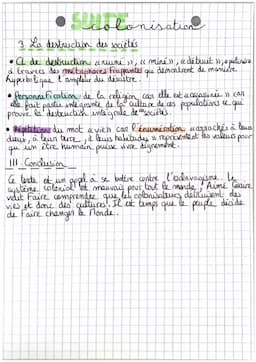 SUITE
colonisation
3. La destruction des sociétés
• CL de destruction « ruiné », « miné », « détruit »,
à travers des métaphores frappantes qui démontrent de manière
hyperbolique l'ampleur du désastre.
• Personnification de la religion car elle est « assassinée » car
elle fait partie intégrante de la culture de ces populations ce qui
prouve la destruction intégrale de sociétés.
• Répétition du mot « vie » car l'énumération « arrachés à leurs
dieux, à leur terre, à leurs habitudes » représente les valeurs pour
qu'un être humain puisse vivre dignement.
III. Conclusion
Ce texte est un appel à se battre contre l'esclavagisme. Le
système colonial est mauvais pour tout le monde, Aimé Césaire
veut faire comprendre que les colonisateurs détruisent des
vies et donc des cultures. Il est temps que le peuple décide
de faire changer le Monde.